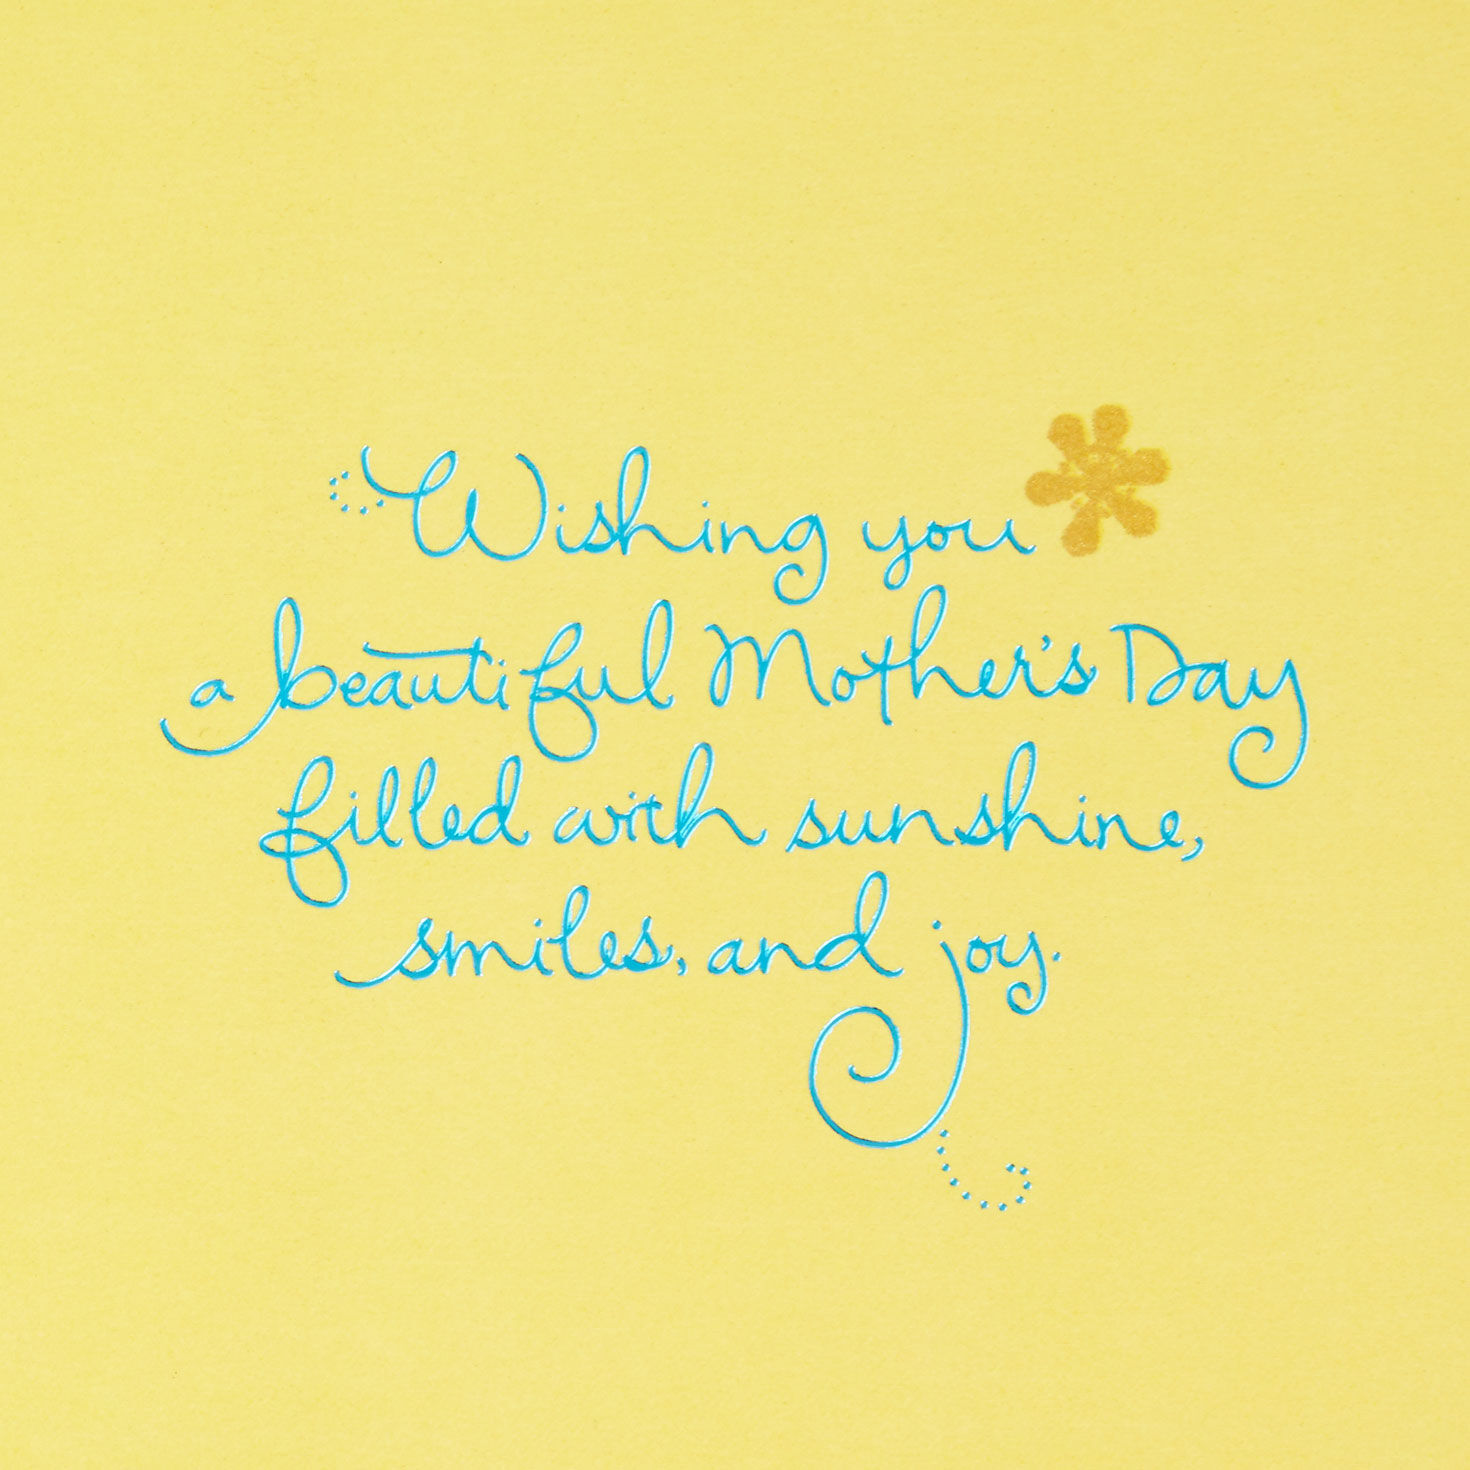 Wishing you
a beautiful Mother's Day
filled with sunshine,
smiles, and joy.